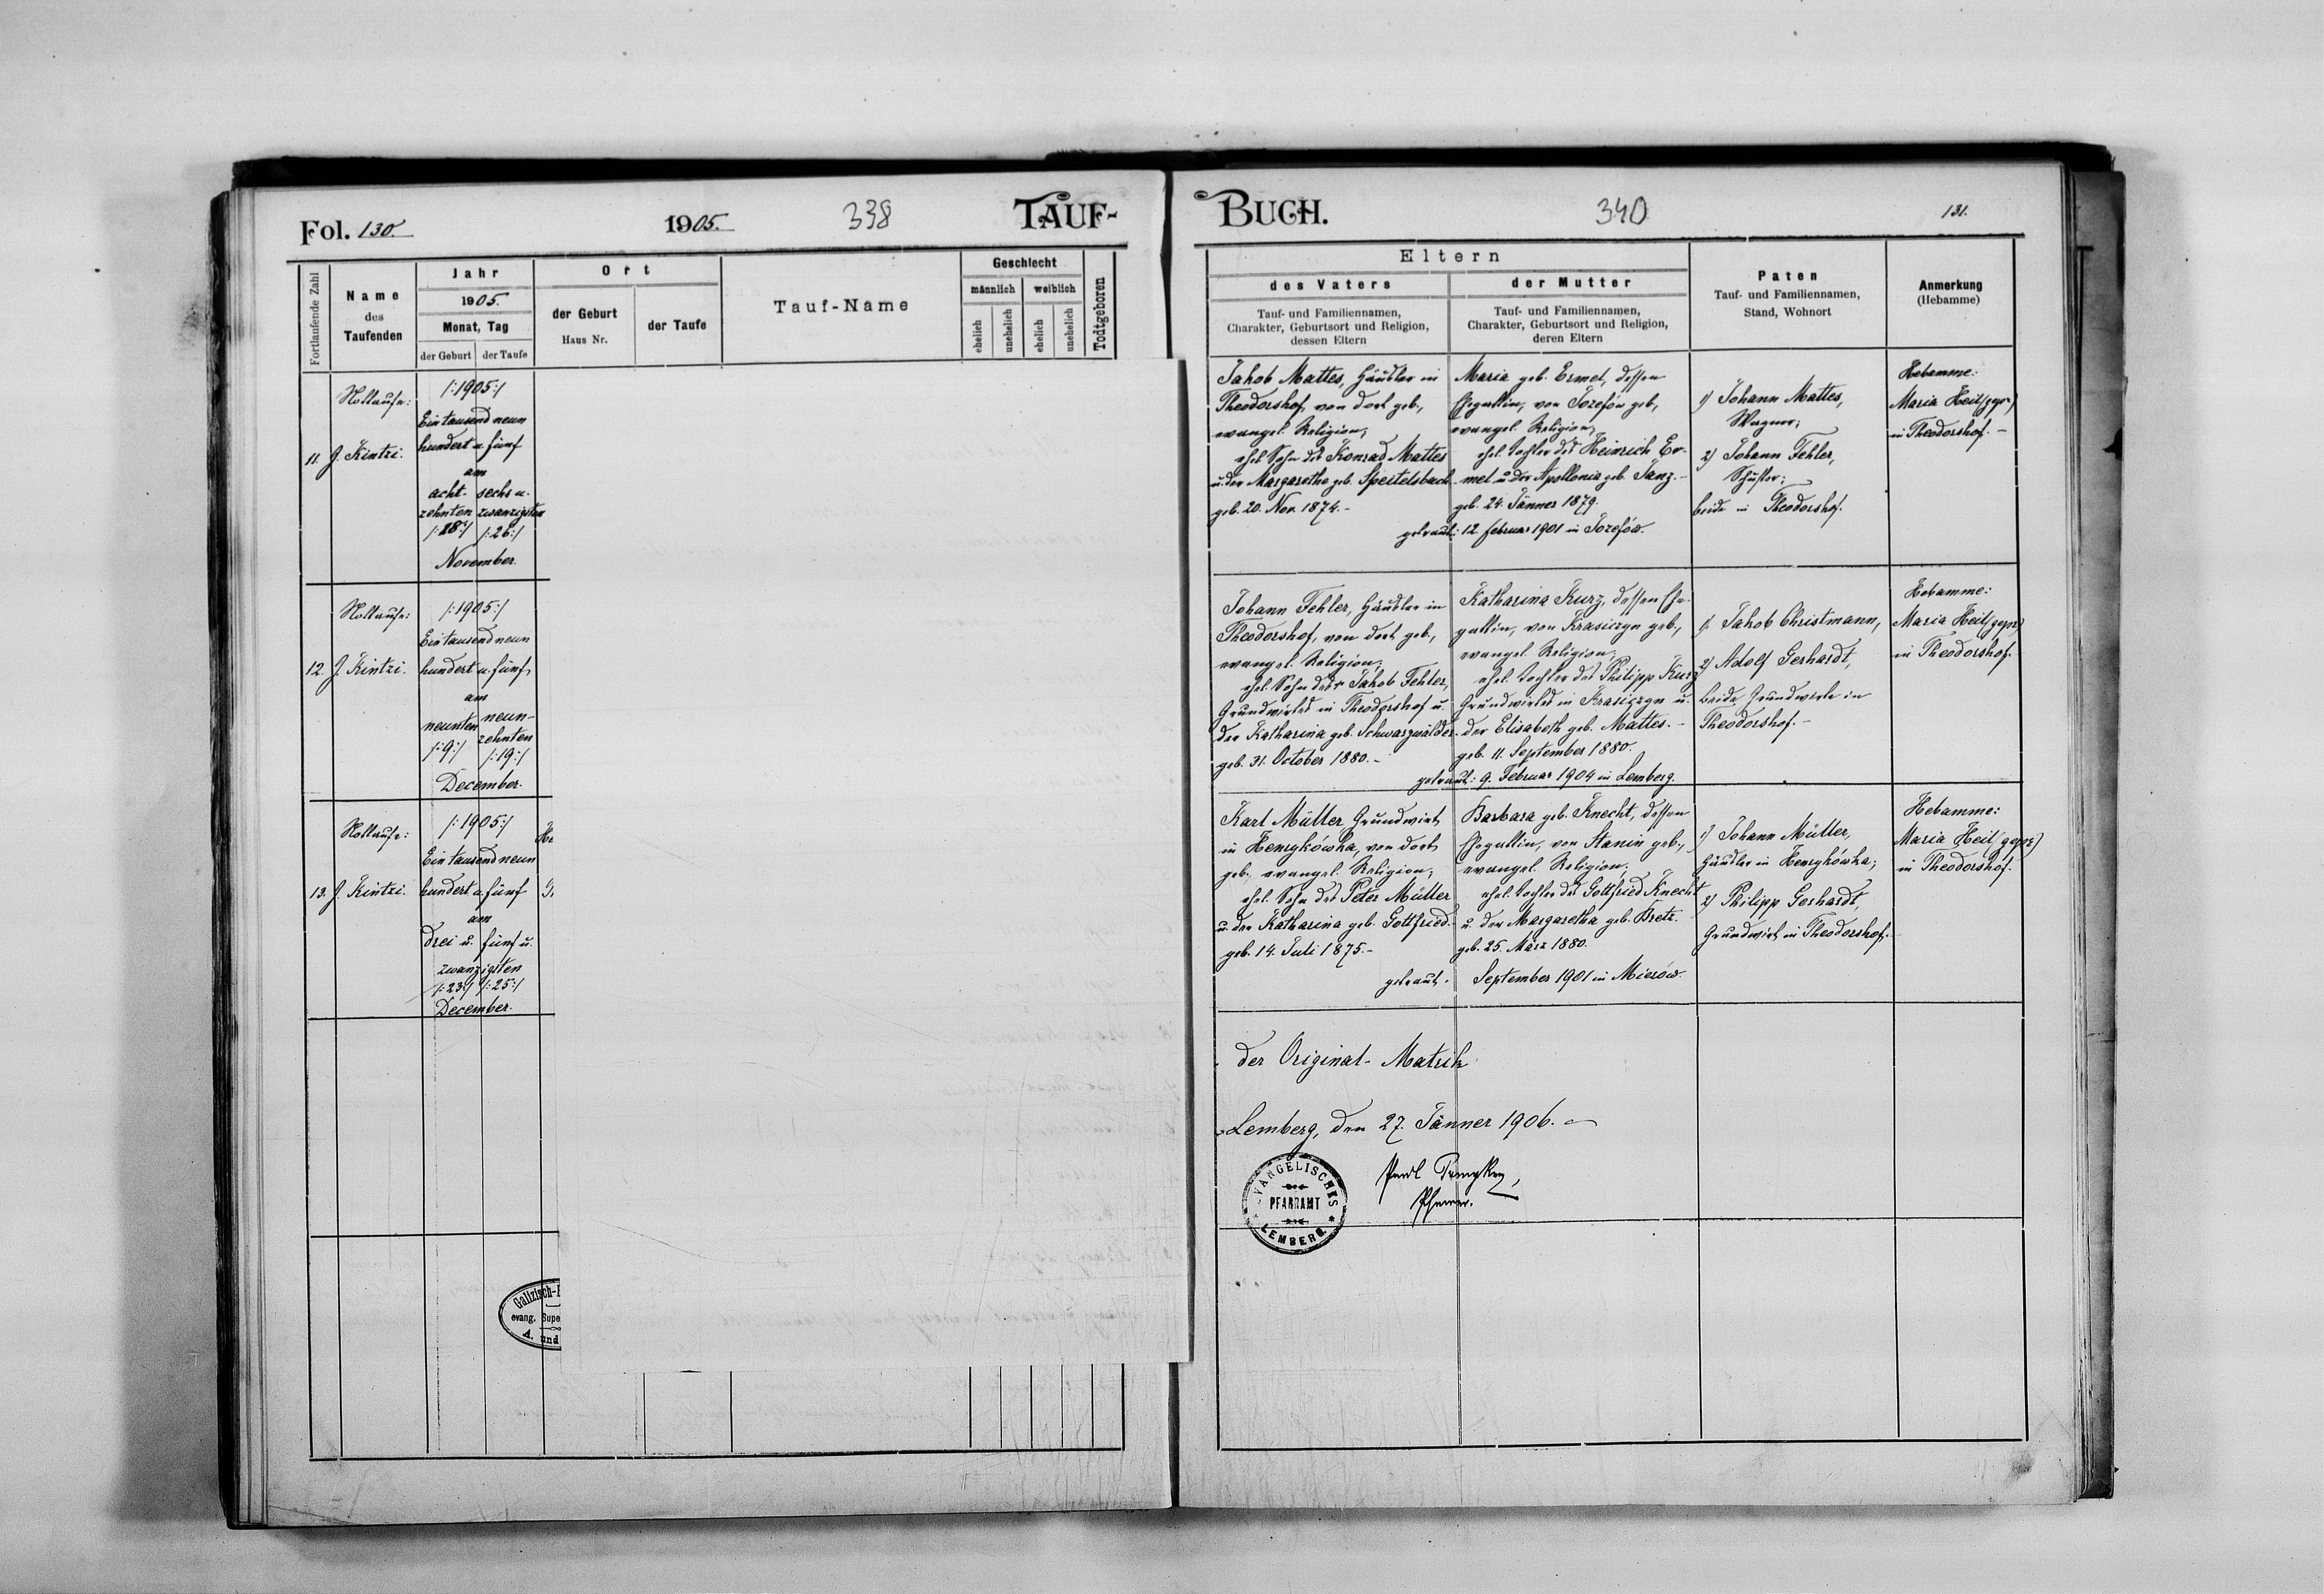 Fol. 130.
1905.
338
TAUF-
Fortlaufende Zahl
Name
des
Taufenden
Jahr
1905.
Monat, Tag
der Geburt
der Taufe
Ort
der Geburt
Haus Nr.
der Taufe
Tauf-Name
Geschlecht
männlich
weiblich
ehelich
unehelich
ehelich
unehelich
Todtgeboren
11.
Nottaufe:
J. Kintzi.
/:1905:/
Ein tausend neun
hundert u. fünf
am
acht- sechs u.
zehnten zwanzigsten
/:18:/ /:26:/
November.
12.
Nottaufe:
J. Kintzi.
/:1905:/
Ein tausend neun
hundert u. fünf
am
neunten neun-
zehnten
/:9:/ /:19:/
December.
13.
Nottaufe:
J. Kintzi.
/:1905:/
Ein tausend neun
hundert u. fünf
am
drei u. fünf u.
zwanzigsten
/:23:/ /:25:/
December.
Galizisch-
evang. Supe
A. und
BUCH.
340
131.
Eltern
des Vaters
Tauf- und Familiennamen,
Charakter, Geburtsort und Religion,
dessen Eltern
der Mutter
Tauf- und Familiennamen,
Charakter, Geburtsort und Religion,
deren Eltern
Paten
Tauf- und Familiennamen,
Stand, Wohnort
Anmerkung
(Hebamme)
Jakob Mattes, Häusler in
Theodorshof, von dort geb.,
evangel. Religion,
ehel. Sohn des Konrad Mattes
u. der Margaretha geb. Speitelsbach
geb. 20. Nov. 1874.-
Maria geb. Ermel, dessen
Ehegattin, von Józefów geb.,
evangel. Religion,
ehel. Tochter des Heinrich Er-
mel u. der Apollonia geb. Janz.-
geb. 24. Jänner 1879.
getraut: 12. Februar 1901 in Józefów.
1) Johann Mattes,
Wagner;
2) Johann Fehler,
Schuster;
beide in Theodorshof.
Hebamme:
Maria Heil (gepr)
in Theodorshof.-
Johann Fehler, Häusler in
Theodorshof, von dort geb.,
evangel. Religion,
ehel. Sohn des Jakob Fehler,
Grundwirtes in Theodorshof u.
der Katharina geb. Schwarzwälder.
geb. 31. October 1880.-
Katharina Kurz, dessen Ehe-
gattin, von Krasiczyn geb.,
evangel. Religion,
ehel. Tochter des Philipp Kurz
Grundwirtes in Krasiczyn u.
der Elisabeth geb. Mattes.-
geb. 11. September 1880.
getraut: 9. Februar 1904 in Lemberg.
1) Jakob Christmann,
2) Adolf Gerhardt,
beide Grundwirte in
Theodorshof.-
Hebamme:
Maria Heil (gepr)
in Theodorshof.
Karl Müller Grundwirt
in Henrykówka, von dort
geb., evangel. Religion,
ehel. Sohn des Peter Müller
u. der Katharina geb. Gottfried.
geb. 14. Juli 1875.-
Barbara geb. Knecht, dessen
Ehegattin, von Stanin geb.,
evangel. Religion,
ehel. Tochter des Gottfried Knecht
u. der Margaretha geb. Bretz.
geb. 25. März 1880.
getraut. September 1901 in Mierów.
1) Johann Müller,
Häusler in Henrykówka;
2) Philipp Gerhardt,
Grundwirt in Theodorshof.
Hebamme:
Maria Heil (gepr)
in Theodorshof.
der Original-Matrik
Lemberg, den 27. Jänner 1906.
EVANGELISCHES
PFARRAMT
LEMBERG.
Pfarrer.